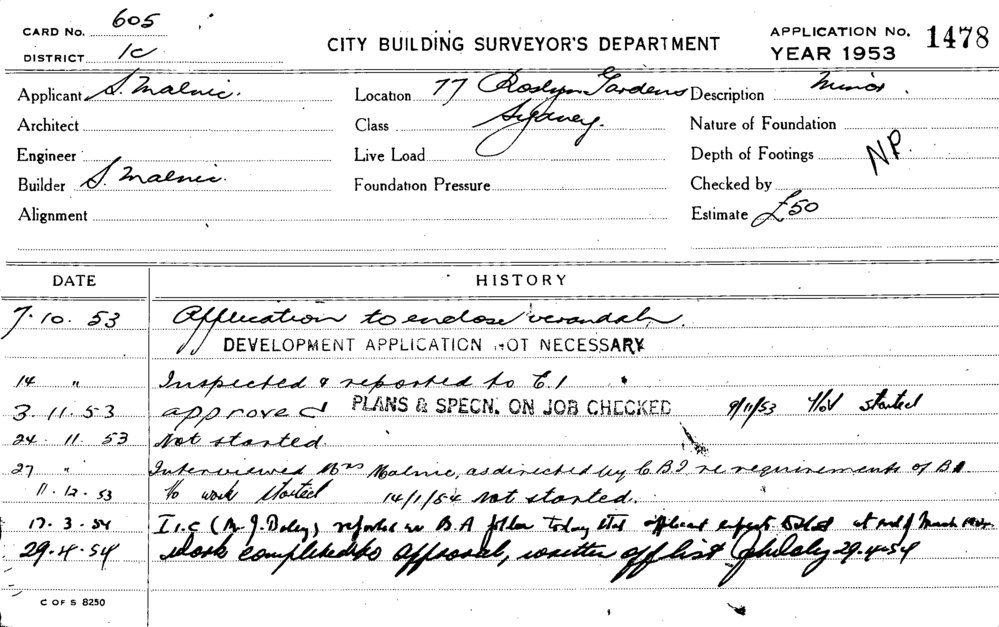 CARD No. 605
DISTRICT 1c
CITY BUILDING SURVEYOR'S DEPARTMENT
APPLICATION No. 1478
YEAR 1953
Applicant S. Malnic.
Location 77 Roslyn Gardens
Sydney.
Description Minor.
Architect
Class
Nature of Foundation
Engineer
Live Load
Depth of Footings N.P.
Builder S. Malnic.
Foundation Pressure
Checked by
Alignment
Estimate £50
DATE HISTORY
7.10.53 Application to enclose verandah.
DEVELOPMENT APPLICATION NOT NECESSARY
14 " Inspected & reported to C.I
3.11.53 approved PLANS & SPECN. ON JOB CHECKED 9/11/53 Not started
24.11.53 Not started.
27 " Interviewed Mrs Malnic, as directed by C.B.I re requirements of B.A
11.12.53 No work started 14/1/54 Not started.
17.3.54 I 1.C (Mr J. ) reported on B.A today that applicant expects to start at end of March
29.4.54 Work completed to approval, written off list 29.4.54
C OF S 8250